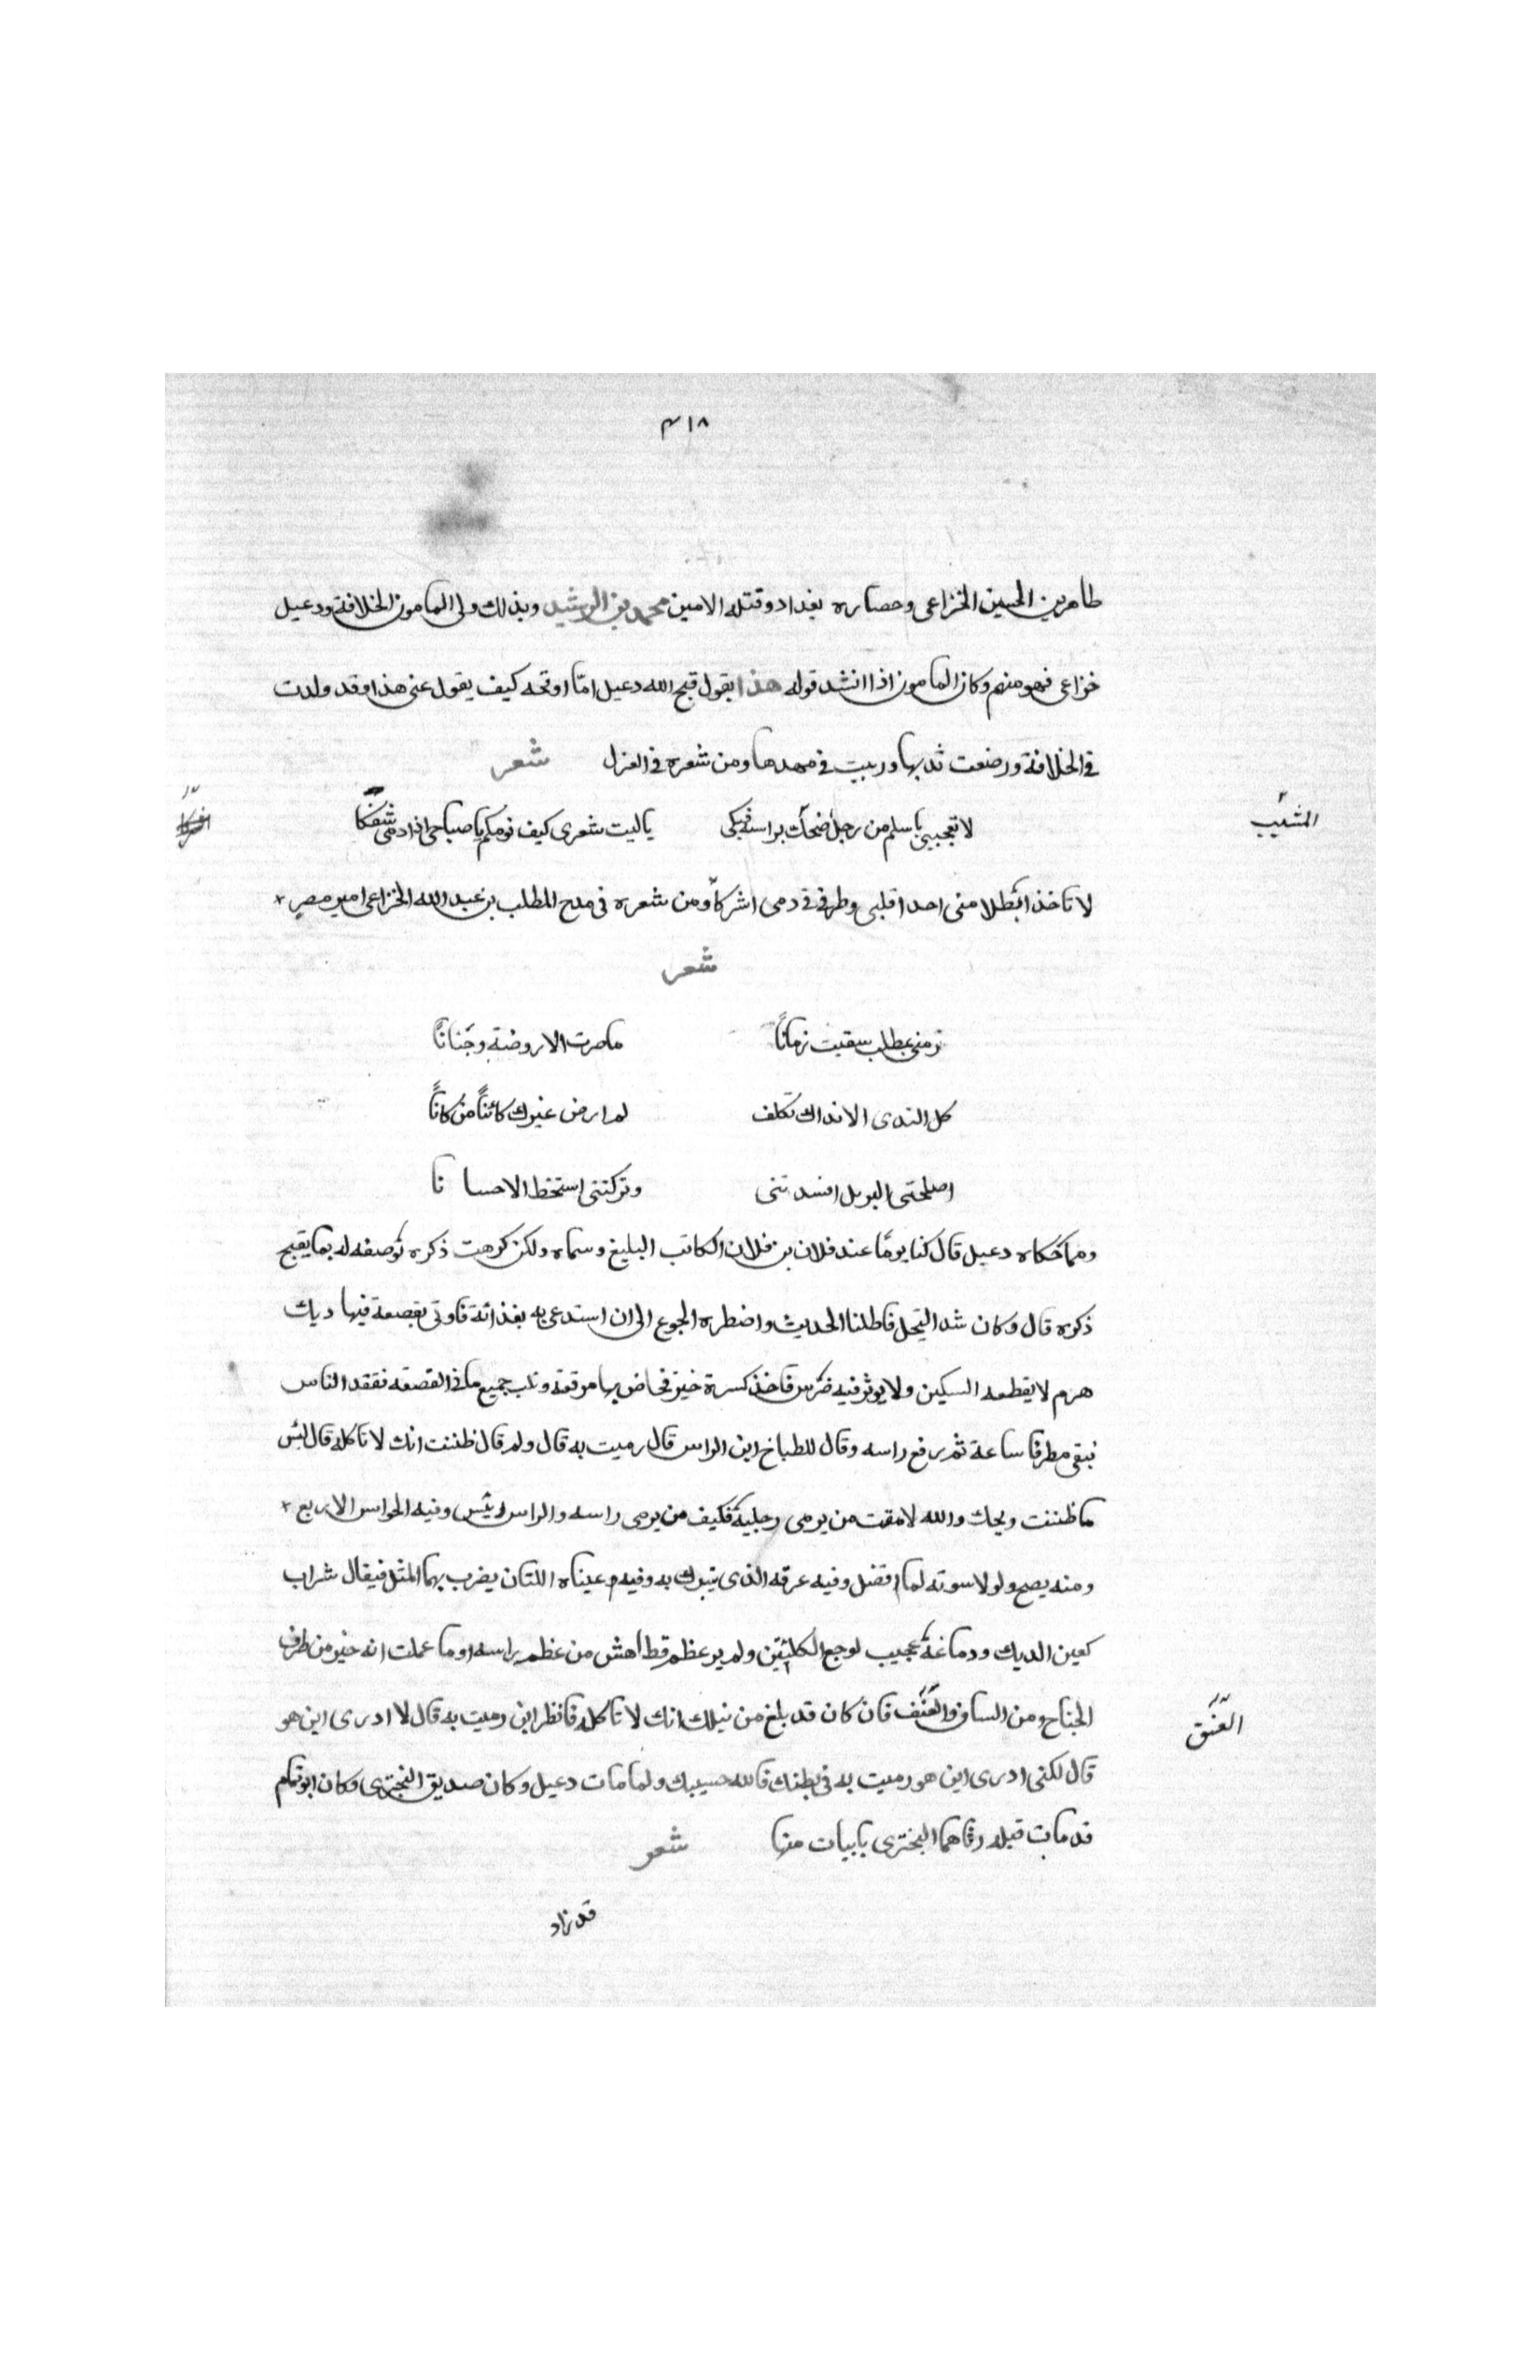 ٣١٨
طاهر بن الحسين الخزاعى وحصاره بغداد وقتله الامين محمد بن الرشيد وبذلك ولى المامون الخلافة ودعبل
خزاعى فهو منهم وكان المامون اذا انشد قوله هذا يقول قبح الله دعبل امّا اوقحه كيف يقول عنى هذا وقد ولدت
فى الخلافة ورضعت ثديها وربيت فى مهدها ومن شعره فى الغزل شعر
المشيب
لا تعجبى يا سلم من رجل ضحك براسه فبكى يا ليت شعرى كيف نومكم يا صباحى اذا دمى سفكا
لا تاخذا بظلامتى احدا قلبى وطرفى فى دمى اشركا ومن شعره فى مدح المطلب بن عبد الله الخزاعى امير مصر
شعر
زمنى بمطلب سقيت زمانًا ماصرت الا روضة وجنانًا
كل الندى الا نداك تكلف لم ارض غيرك كائنًا من كانًا
اصلحتنى بالبر بل افسدتنى وتركتنى استخط الاحسانا
ومما حكاه دعبل قال كنا يومًا عند فلان بن فلان الكاتب البليغ وسماه ولكن كرهت ذكره توصفه له بما يقبح
ذكره قال وكان شد البخل فاطلنا الحديث واضطره الجوع الى ان استدعى به بغذائه فاوتى بقصعة فيها ديك
هرم لا يقطعه السكين ولا يوثر فيه ضرس فاخذ كسرة خبز فخاض بها مرقته وقلب جميع ما فى القصعه ففقد الناس
فبقى مطرقا ساعة ثم رفع راسه وقال للطباخ اين الراس قال رميت به قال ولم قال ظننت انك لا تاكله قال لبئس
ما ظننت ويحك والله لامقت من يرمى رجليه فكيف من يرمى راسه والراس رئيس وفيه الحواس الاربع
ومنه يصح ولولا صوته لما فضل وفيه عرفه الذى يتبرك به وفيه عيناه اللتان يضرب بهما المثل فيقال شراب
كعين الديك ودماغه عجيب لوجع الكليتين ولم ير عظم قط اهش من عظم راسه او ما علمت انه خير من طرف
الجناح ومن الساق والعنق فان كان قد بلغ من نيلك انك لا تاكله فانظر اين رميت به قال لا ادرى اين هو
العنق
قال لكنى ادرى اين هو رميت به فى بطنك فالله حسيبك ولما مات دعبل وكان صديق البحترى وكان ابو تمام
قد مات قبله رثاهما البحترى بابيات منها شعر
قد زاد